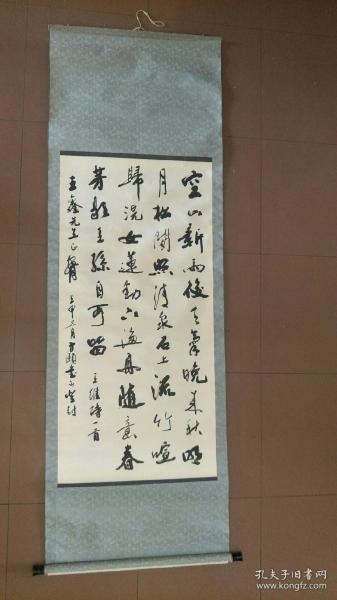 空山新雨後天氣晚來秋明
月松間照清泉石上流竹喧
歸浣女蓮動下漁舟隨意春
芳歇王孫自可留 王維詩一首
王鑫先生正
壬申三月
孔夫子旧书网
www.kongfz.com